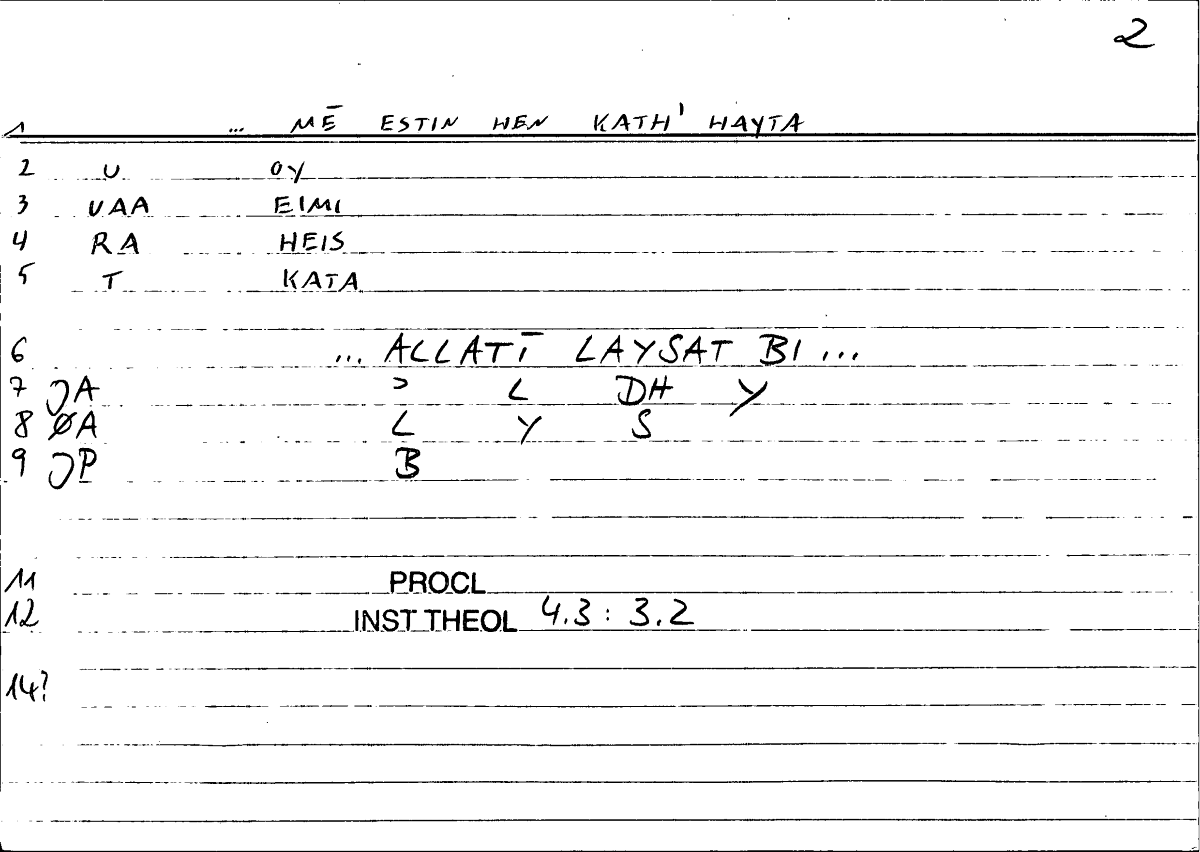 2
1 ... MĒ ESTIN HEN KATH' HAYTA
2 U OY
3 VAA EIMI
4 RA HEIS
5 T KATA
6 ... ALLATĪ LAYSAT BI ...
7 JA > L DH Y
8 ØA L Y S
9 JP B
11 PROCL
12 INST THEOL 4.3 : 3.2
14?